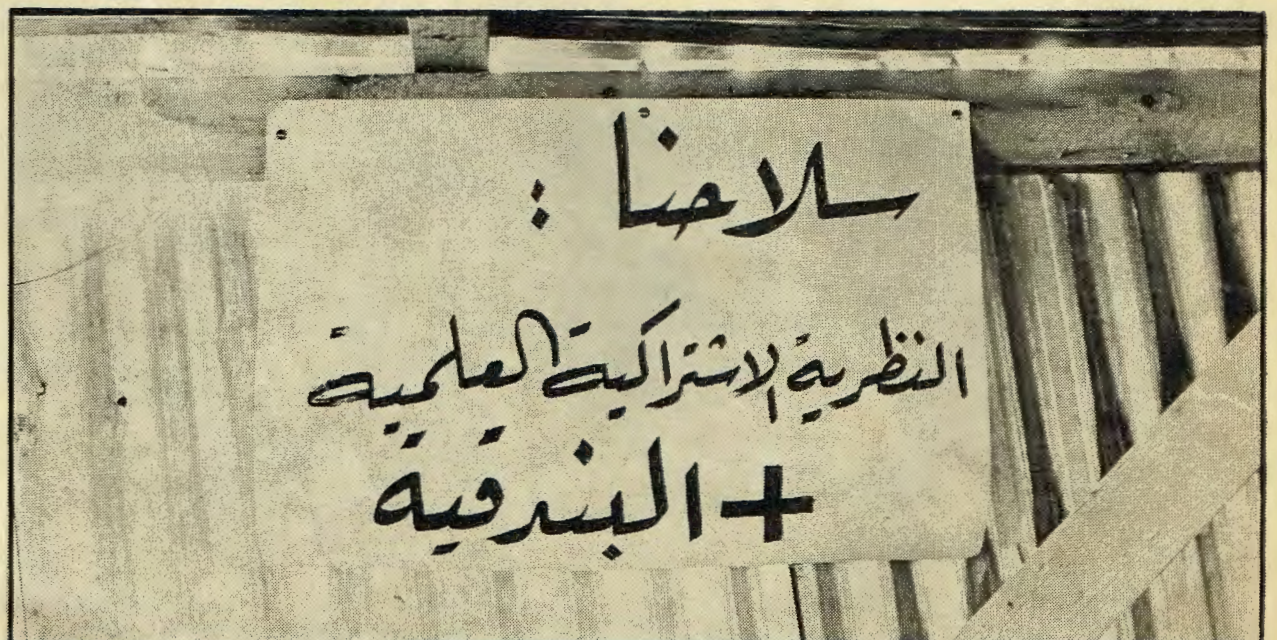 سلاحنا :
النظرية الاشتراكية العلمية
+ البندقية